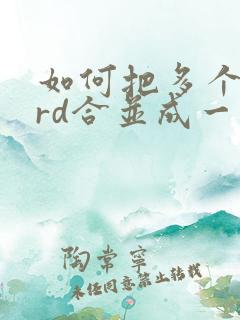 如何把多个
rd合並成一
陶常宁
未经同意禁止转载